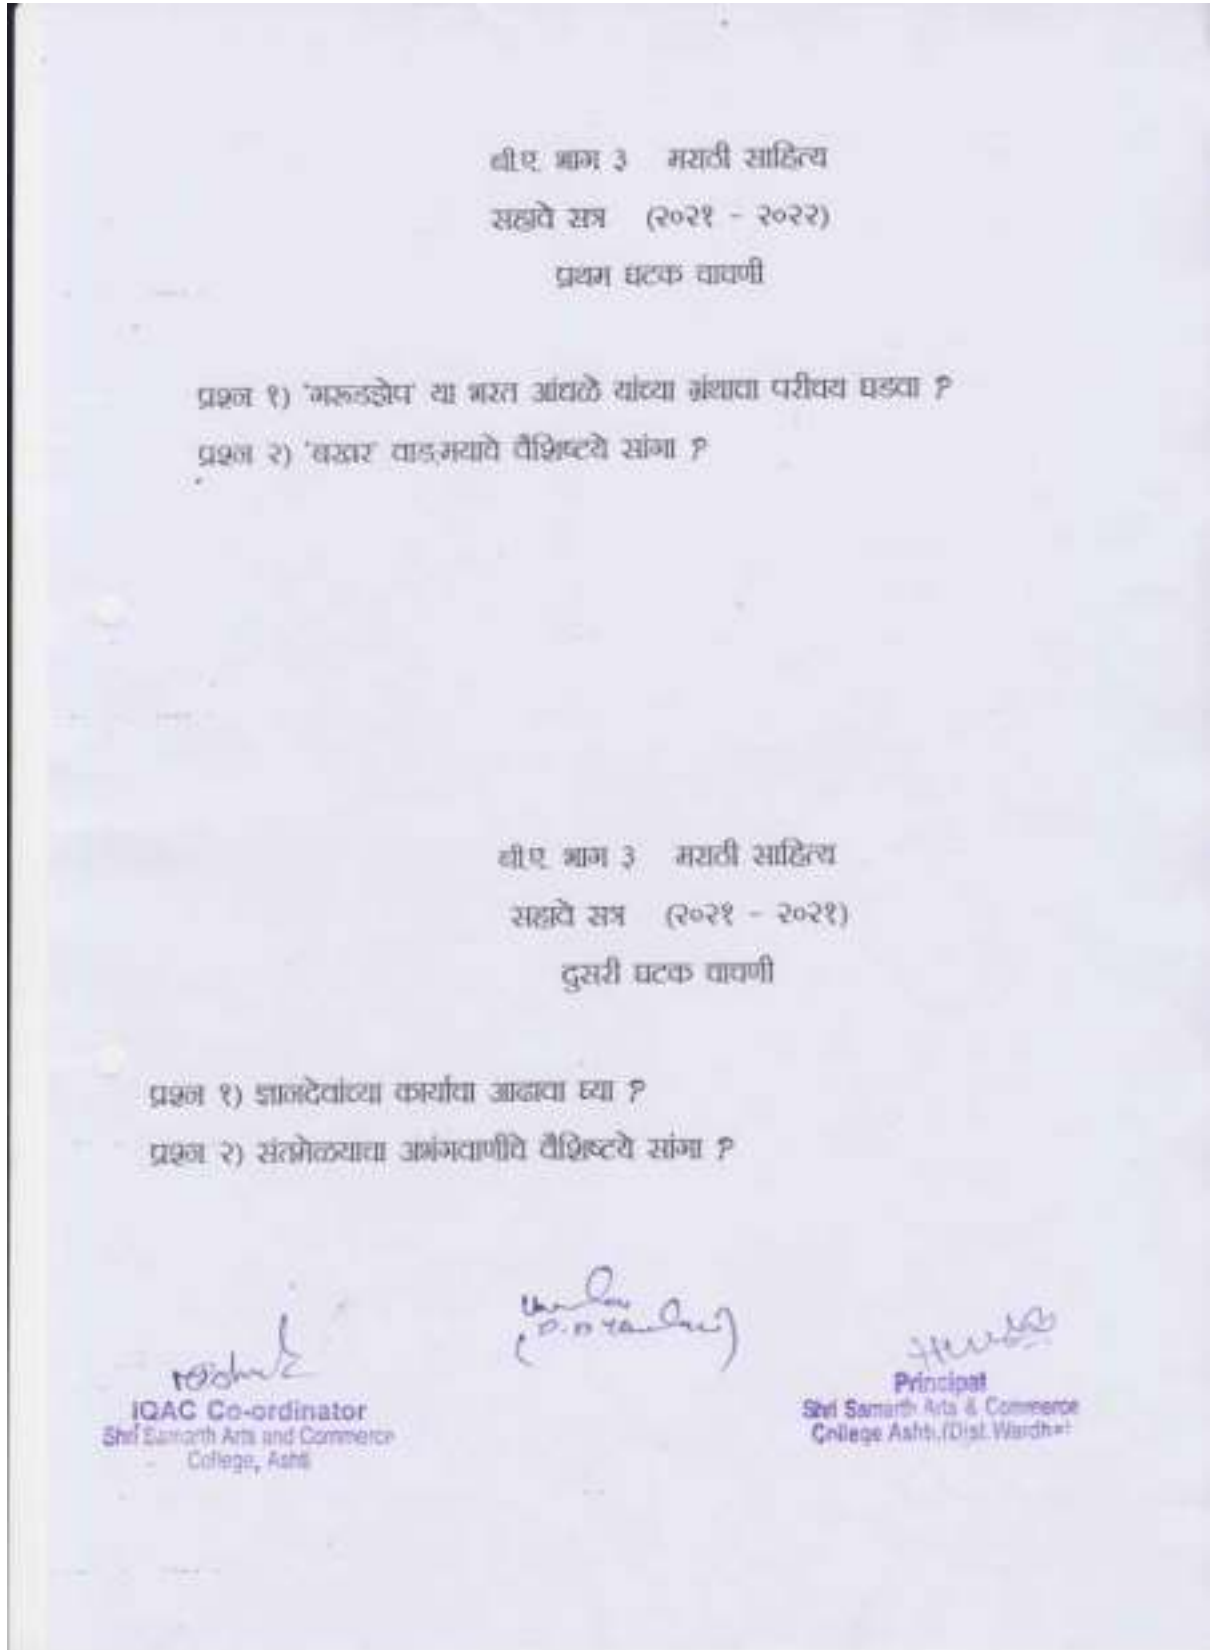 बी.ए. भाग ३ मराठी साहित्य
सहावे सत्र (२०२१ - २०२२)
प्रथम घटक चाचणी
प्रश्न १) 'गरूडझेप' या भरत आंधळे यांच्या ग्रंथाचा परीचय घडवा ?
प्रश्न २) 'बखर' वाड्.मयाचे वैशिष्टये सांगा ?
बी.ए. भाग ३ मराठी साहित्य
सहावे सत्र (२०२१ - २०२१)
दुसरी घटक चाचणी
प्रश्न १) ज्ञानदेवांच्या कार्याचा आढावा घ्या ?
प्रश्न २) संतमेळयाचा अभंगवाणीचे वैशिष्टये सांगा ?
IQAC Co-ordinator
Shri Samarth Arts and Commerce
College, Ashti
Principal
Shri Samarth Arts & Commerce
College Ashti,(Dist.Wardha)